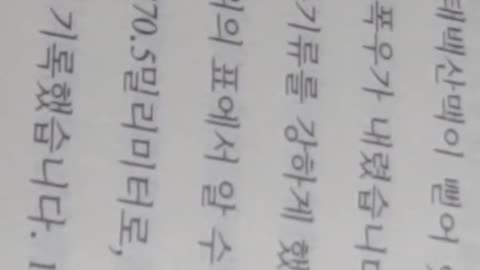 태백산맥이 뻗어
폭우가 내렸습니다
기류를 강하게 했
의 표에서 알 수
70.5밀리미터로,
기록했습니다. 1